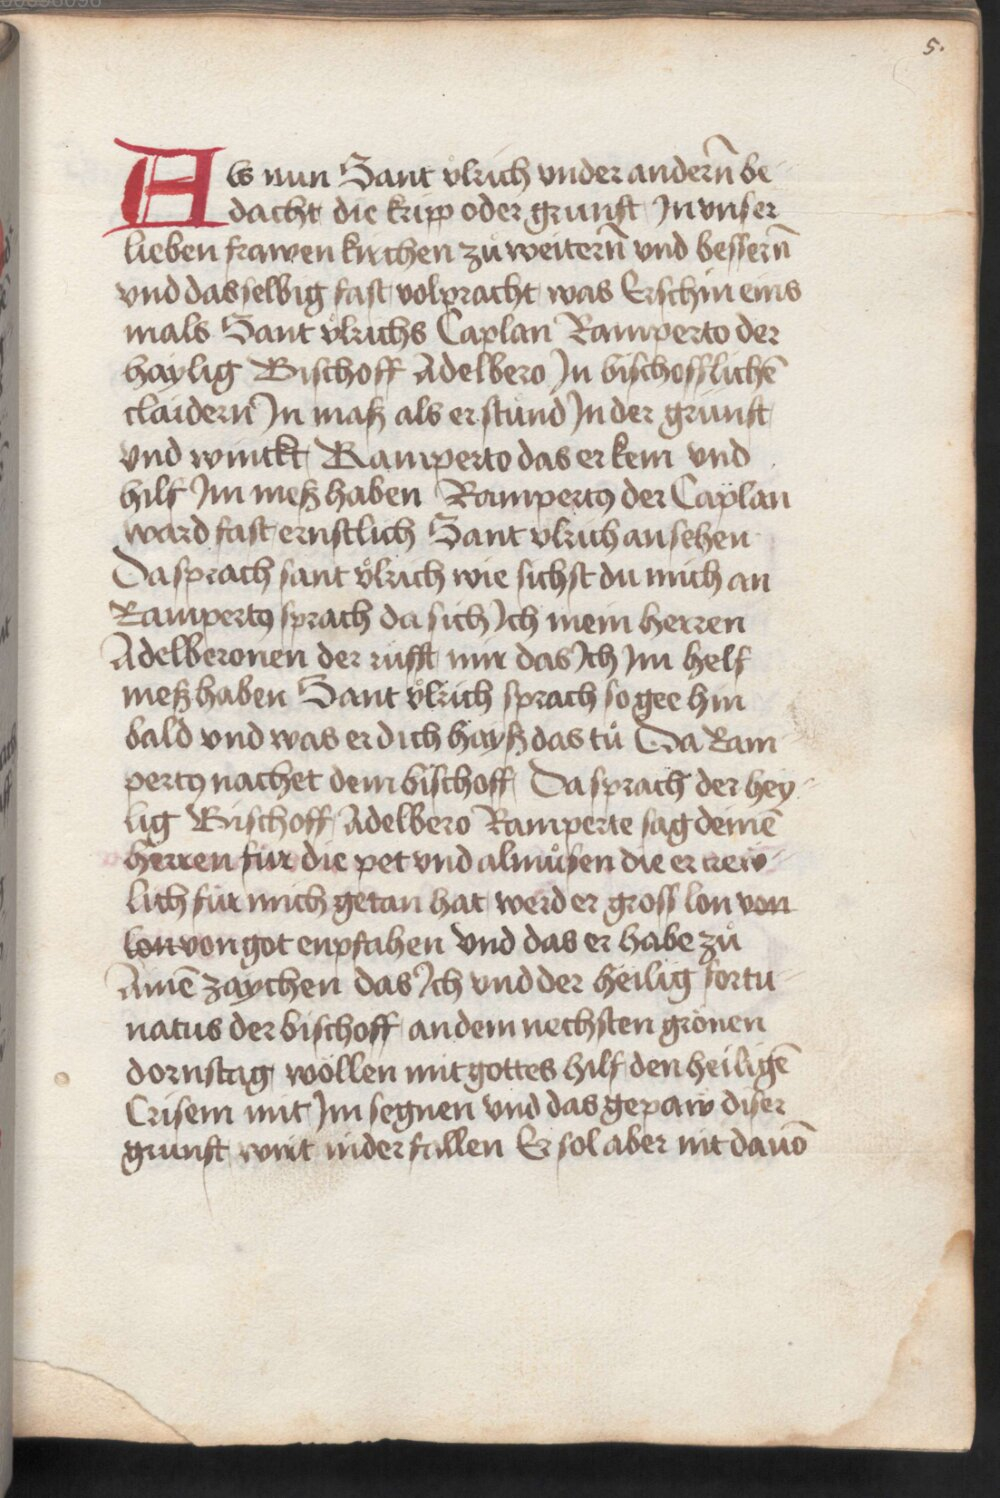 5.
Als nun Sant ůlrich vnder andern̄ be
dacht die kripp oder grunft Jn vnser
lieben frawen kirchen zů weitern̄ vnd bessern̄
vnd dasselbig fast volpracht was Erschin eins
mals Sant ůlrichs Caplan Ramperto der
haylig Bischoff Adelbero Jn bischofflichē
claidern Jn maß als er stůnd Jn der grunft
vnd winckt Ramperto das er kem vnd
hilf Jm meß haben Rampertꝰ der Caplan
ward fast ernstlich Sant vlrich ansehen
Da sprach sant ůlrich wie sichst du mich an
Rampertꝰ sprach da sich Jch mein herren
Adelberonen der rufft mir das Jch Jm helf
meß haben Sant ůlrich sprach so gee hin
bald vnd was er dich hayß das tů Da Ram
pertꝰ nachet dem bischoff Da sprach der hey
lig Bischoff Adelbero Ramperte sag deinē
herren für die pet vnd almůsen die er trew
lich für mich getan hat werd er gross lon von
lon von got enpfahen Vnd das er habe zů
Ainē zaychen das Jch vnd der heilig fortu
natus der bischoff an dem nechsten grönen
dornstag wöllen mit gottes hilf den heiligē
Crisem mit Jm segnen vnd das gepaw diser
grunft wirt niderfallen Er sol aber nit dauō